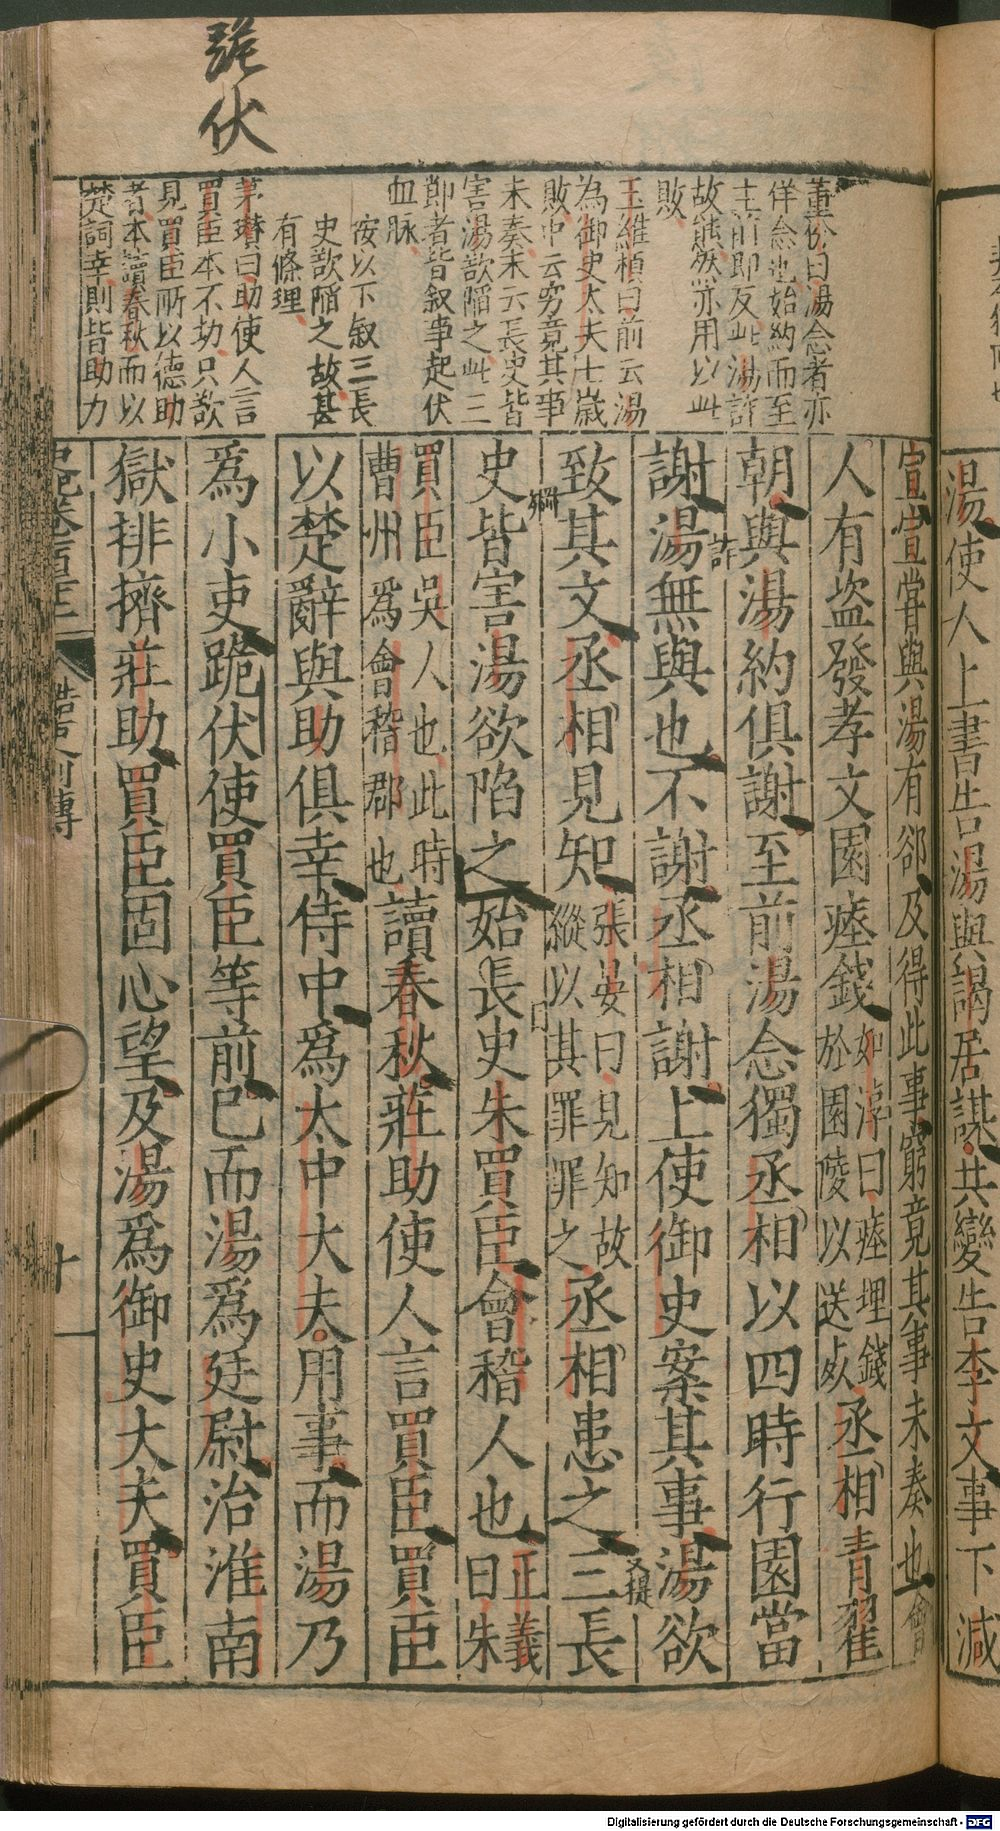 跪伏
董份曰湯念者亦
佯念也始約而至
主前即反此湯詐
故能然亦用以此
敗
王維楨曰前云湯
為御史大夫七歲
敗中云窮竟其事
未奏末云長史皆
害湯欲陷之此三
節者皆叙事起伏
血脉
按以下叙三長
史欲陷之故甚
有條理
茅瓚曰助使人言
買臣本不切只歆
見買臣所以德助
者本讀春秋而以
楚詞幸則皆助力
湯使人上書告湯與謁居謀共變告李文事下減
宣宣嘗與湯有郤及得此事窮竟其事未奏也會
人有盜發孝文園瘞錢如淳曰瘞埋錢於園陵以送处丞相青翟
朝與湯約俱謝至前湯念獨丞相以四時行園當
謝湯無與也不謝丞相謝上使御史案其事湯欲
許
又提
致其文丞相見知張晏曰見知故縱以其罪罪之丞相患之三長
綱
史皆害湯欲陷之始長史朱買臣會稽人也正義曰朱
買臣吳人也此時曹州為會稽郡也讀春秋莊助使人言買臣買臣
以楚辭與助俱幸侍中爲太中大夫用事而湯乃
爲小吏跪伏使買臣等前已而湯爲廷尉治淮南
獄排擠莊助買臣固心望及湯爲御史大夫買臣
十
Digitalisierung gefördert durch die Deutsche Forschungsgemeinschaft - DFG